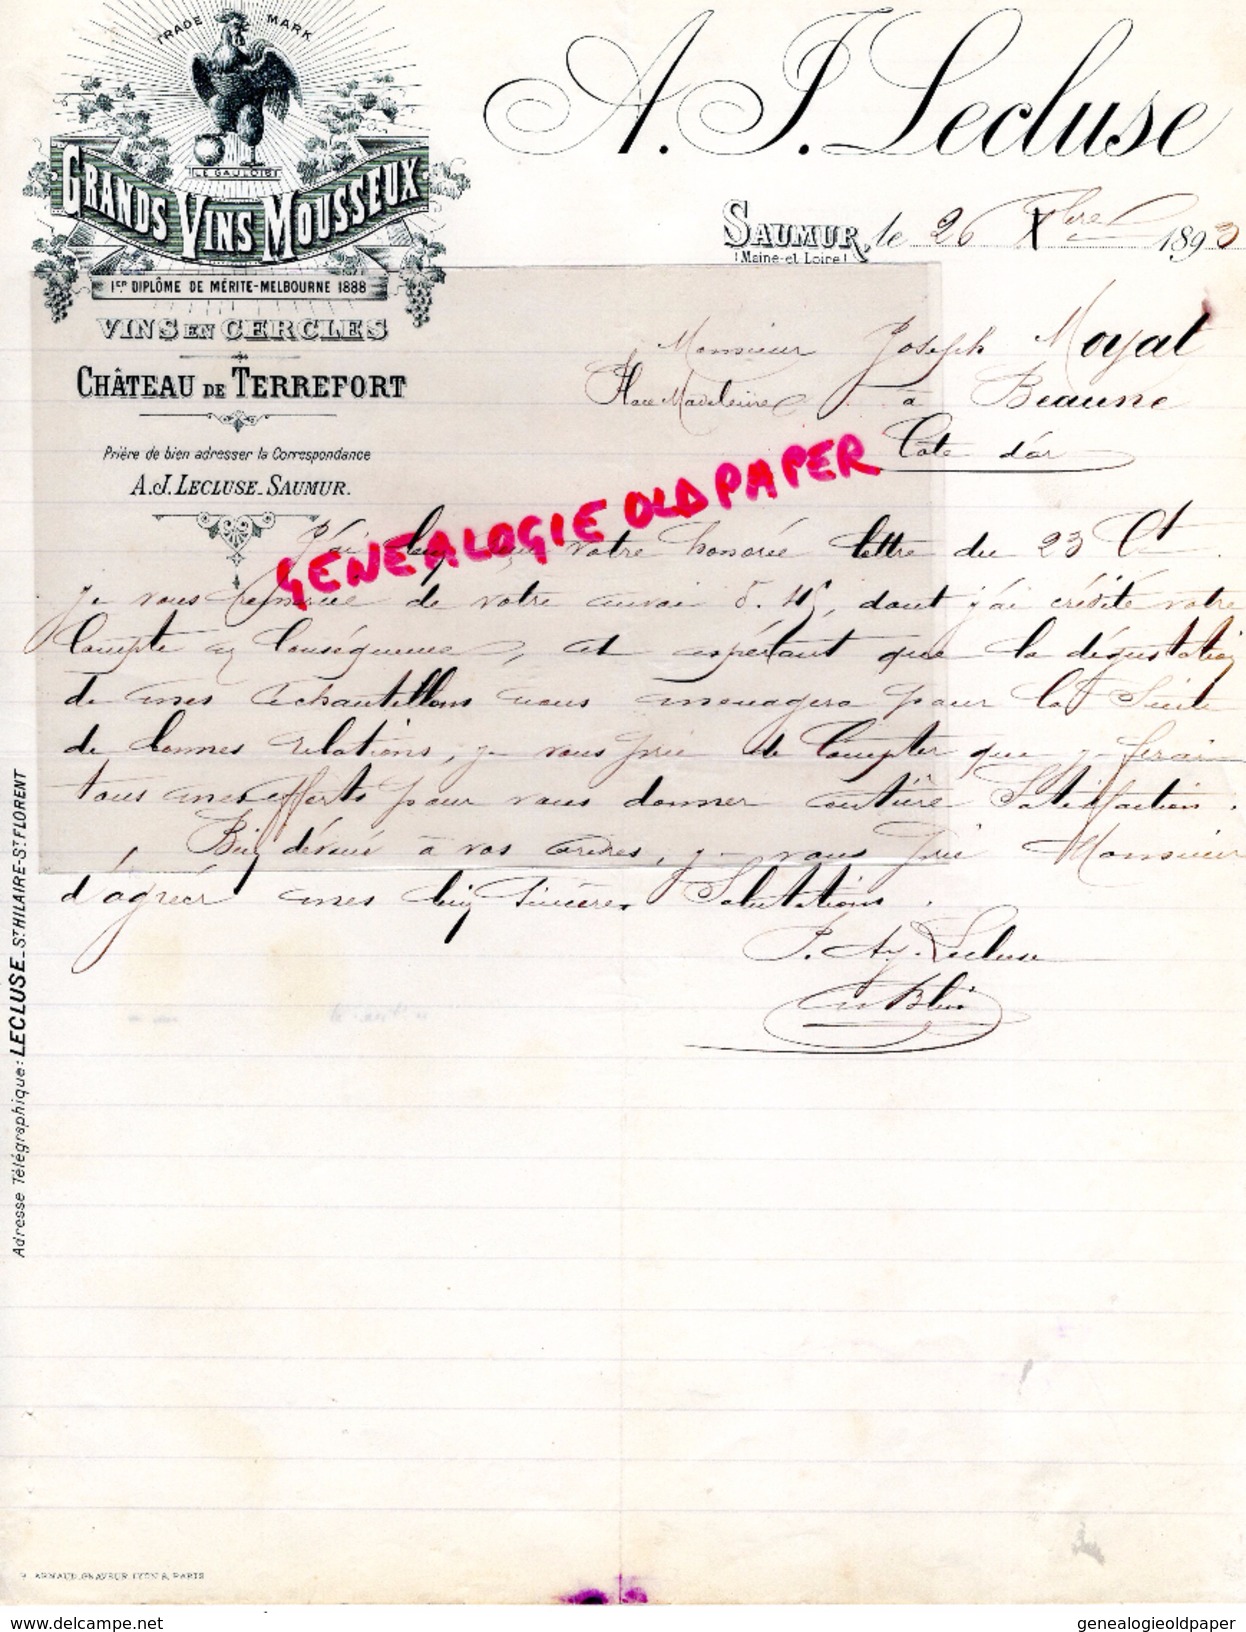 TRADE MARK
LE GAULOIS
GRANDS VINS MOUSSEUX
1ER DIPLÔME DE MÉRITE-MELBOURNE 1888
VINS EN CERCLES
CHÂTEAU DE TERREFORT
Prière de bien adresser la Correspondance
A.J. LECLUSE_SAUMUR.
A. J. Lecluse
SAUMUR, le 26 Xbre 1893
(Maine-et-Loire)
Monsieur Joseph Moyat
Place Madeleine à Beaune
Cote d'or
GENEALOGIE OLD PAPER
J'ai votre honorée lettre du 23 Ct.
je vous remercie de votre envoi f. 45, dont j'ai crédité votre
Compte en Conséquence, et espérant que la dégustation
de mes échantillons nous menagera pour la Suite
de bonnes relations, je vous prie de Compter que je ferai
tous mes efforts pour vous donner entière Satisfaction.
Bien dévoué à vos ordres, je vous prie Monsieur
d'agréér mes bien sincères Salutations.
Lecluse
Adresse Télégraphique: LECLUSE_ST HILAIRE-ST FLORENT
ARNAUD, GRAVEUR LYON & PARIS
https://www.delcampe.net
genealogieoldpaper